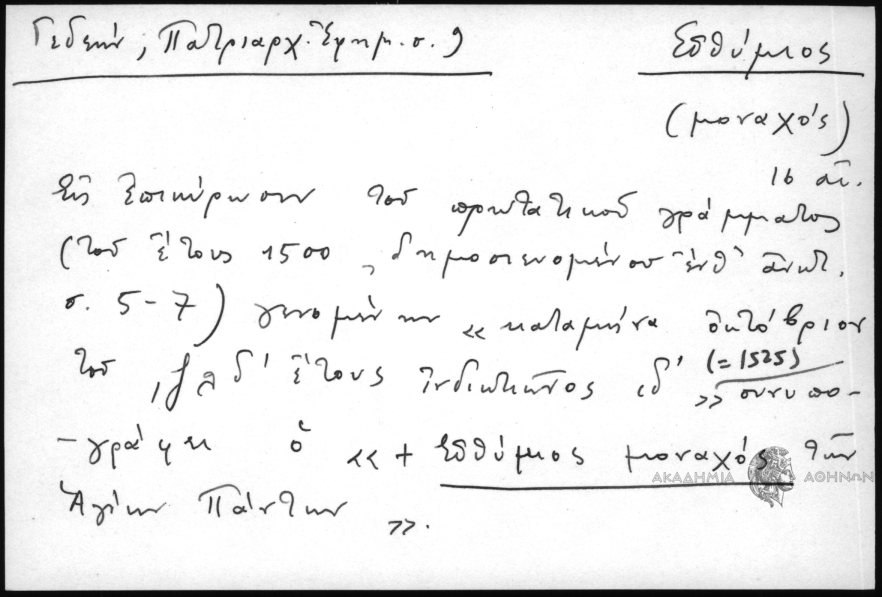 Γεδεών, Πατριαρχ. Ἐφημ. σ. 9
Εὐθύμιος
(μοναχός)
16 αἰ.
Εἰς ἐπικύρωσιν τοῦ πρωτατικοῦ γράμματος
(τοῦ ἔτους 1500, δημοσιευομένου ἐνθ' ἀνωτ.
σ. 5-7) γενομένην «καταμῆνα ὀκτώβριον
τοῦ ͵ζλδ' ἔτους ἰνδικτιῶνος ιδ' (=1525)» συνυπο-
-γράφει ὁ «+ Εὐθύμιος μοναχός τῶν
Ἁγίων Πάντων».
ΑΚΑΔΗΜΙΑ ΑΘΗΝΩΝ